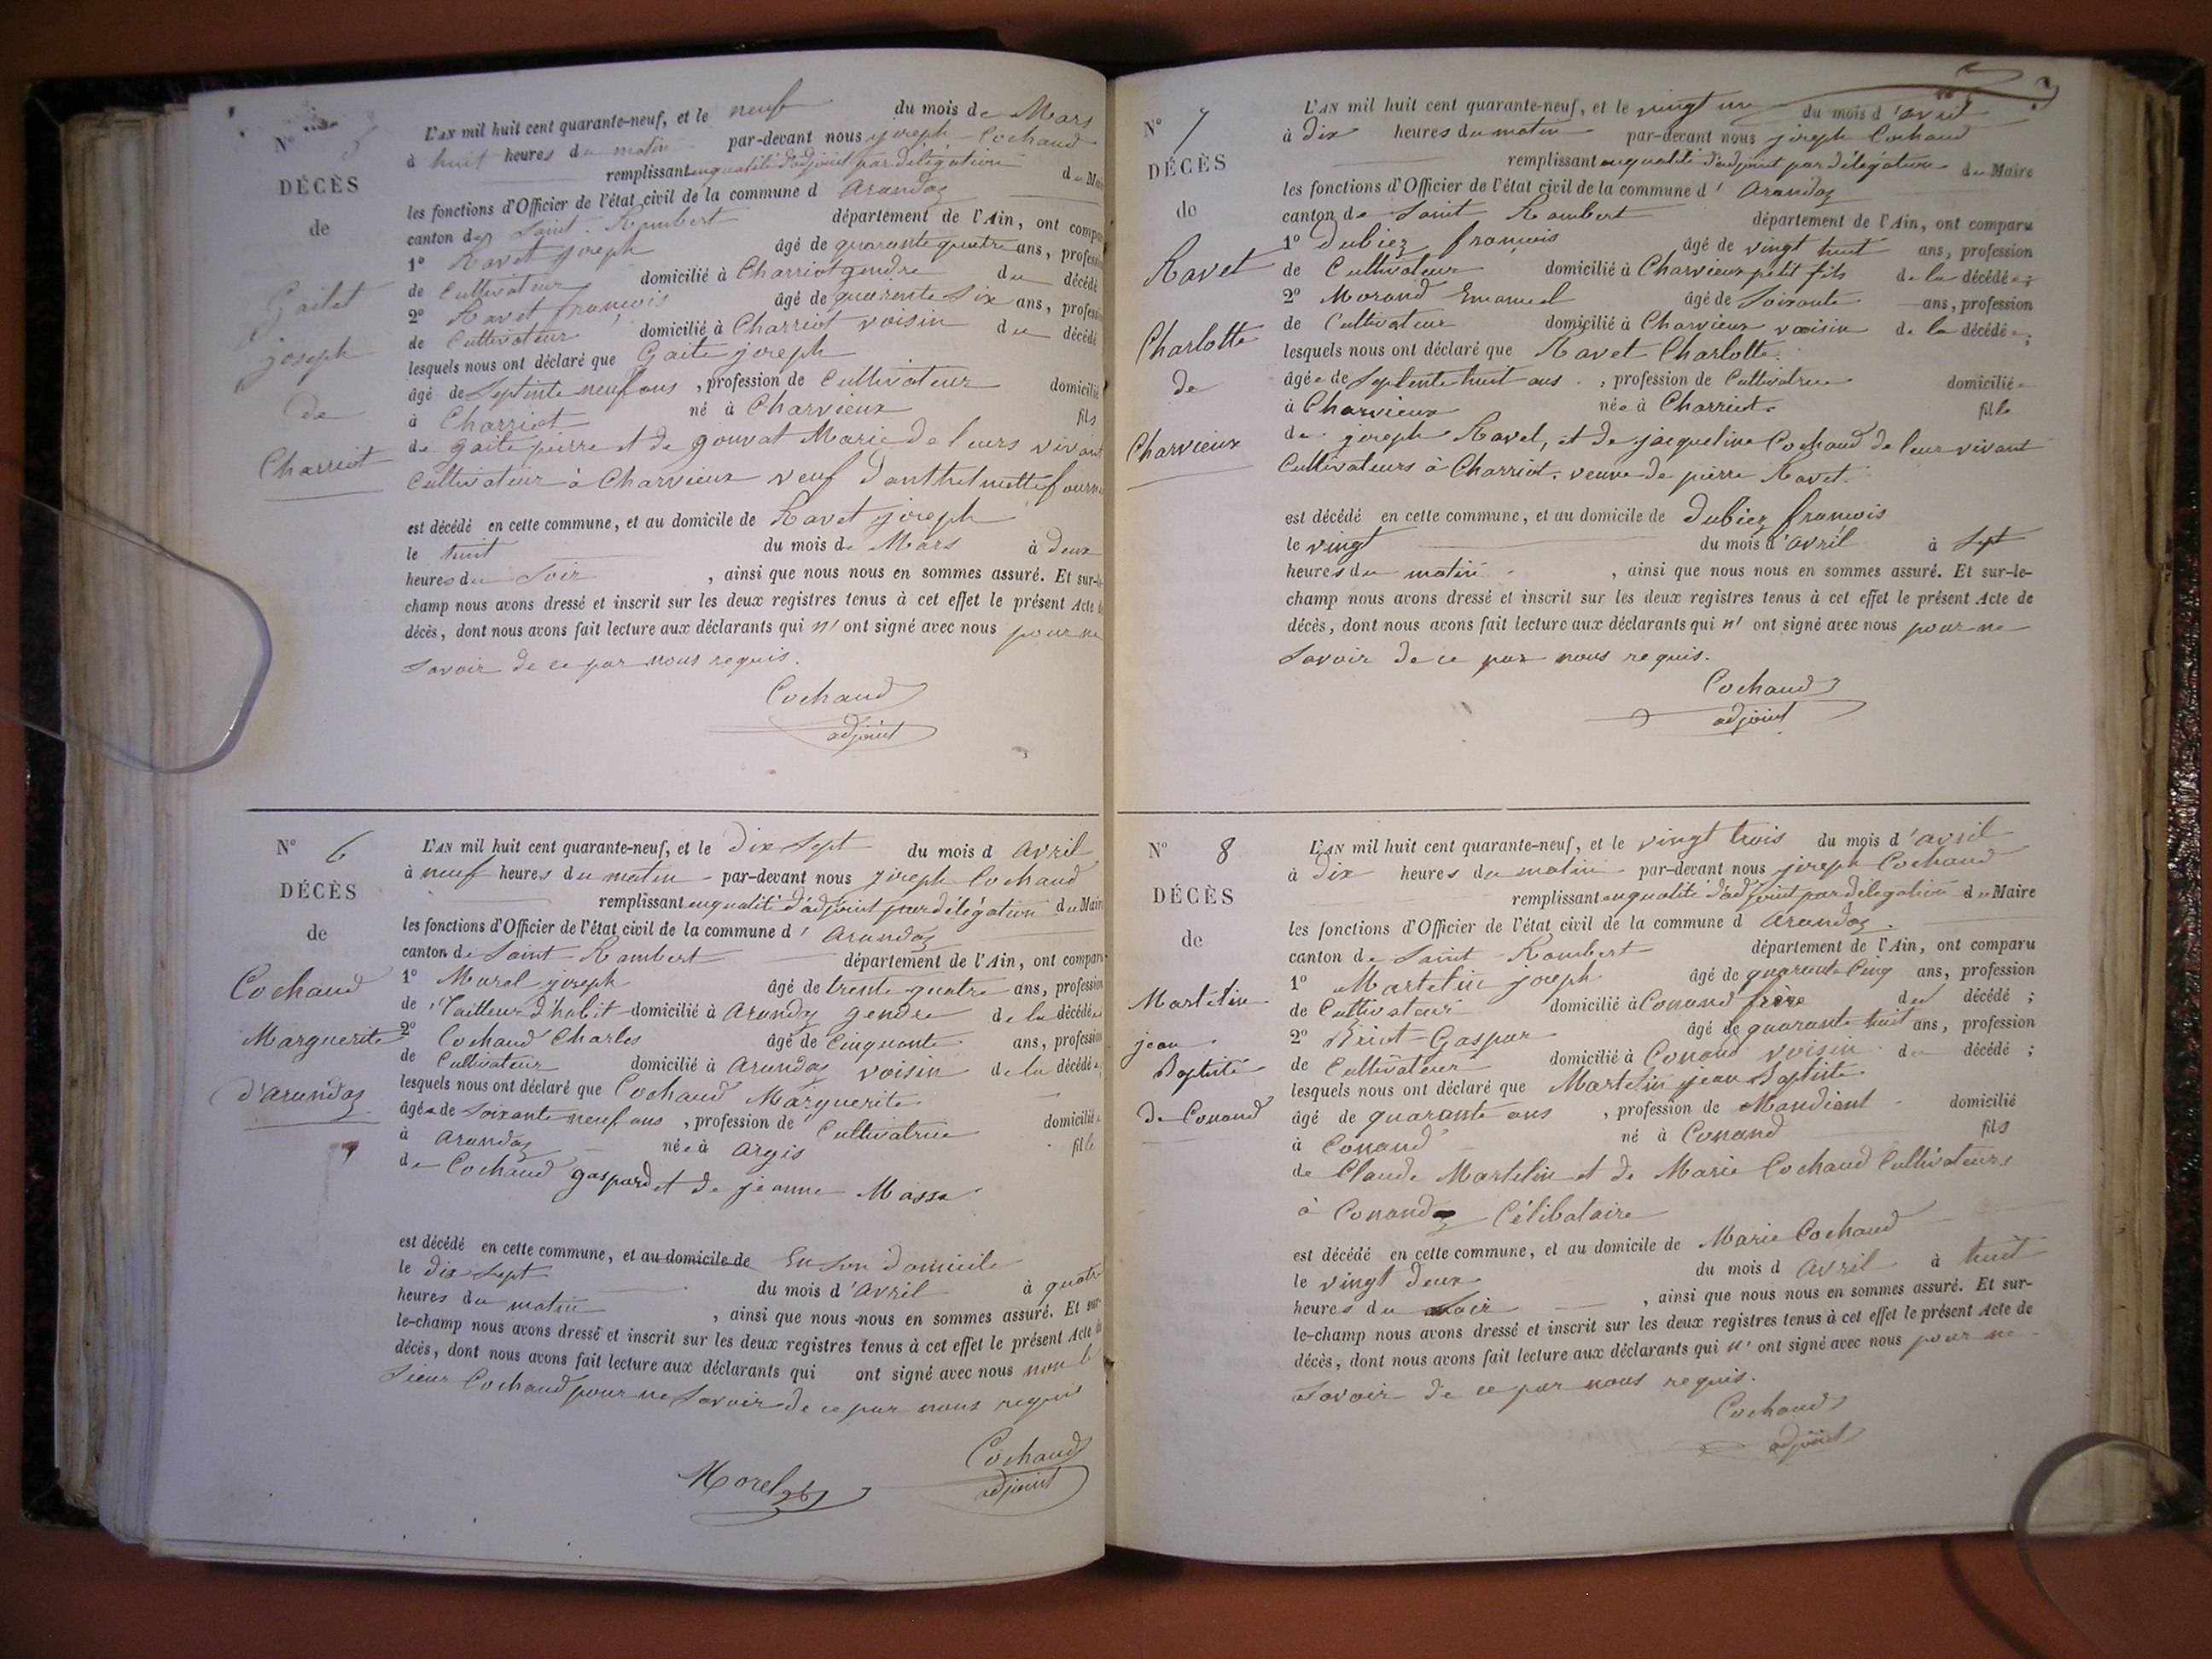 N° 5
DÉCÈS
de
Gaitet
joseph
de
Charriot
L'AN mil huit cent quarante-neuf, et le neuf du mois de Mars
à huit heures du matin par-devant nous joseph Cochaud
remplissant en qualité d'adjoint par délégation du Maire
les fonctions d'Officier de l'état civil de la commune d Arandaz
canton de Saint-Rambert département de l'Ain, ont comparu
1° Ravet joseph âgé de quarante quatre ans, profession
de Cultivateur domicilié à Charriot gendre du décédé
2° Ravet françois âgé de quarente six ans, profession
de Cultivateur domicilié à Charriot voisin du décédé
lesquels nous ont déclaré que Gaite joseph
âgé de Septente neuf ans, profession de Cultivateur domicilié
à Charriot né à Charvieux fils
de gaite pierre et de gouvat Marie de leurs vivant
Cultivateur à Charvieux veuf d'anthelmette
est décédé en cette commune, et au domicile de Ravet joseph
le huit du mois de Mars à deux
heures du Soir, ainsi que nous nous en sommes assuré. Et sur-le-
champ nous avons dressé et inscrit sur les deux registres tenus à cet effet le présent Acte de
décès, dont nous avons fait lecture aux déclarants qui n' ont signé avec nous pour ne
Savoir de ce par nous requis.
Cochaud
adjoint
N° 6
DÉCÈS
de
Cochaud
Marguerite
d'arandaz
L'AN mil huit cent quarante-neuf, et le Dix Sept du mois d avril
à neuf heures du matin par-devant nous joseph Cochaud
remplissant en qualité d'adjoint par délégation du Maire
les fonctions d'Officier de l'état civil de la commune d' Arandaz
canton de Saint-Rambert département de l'Ain, ont comparu
1° Morel joseph âgé de trente quatre ans, profession
de Tailleur d'habit domicilié à Arandaz gendre de la décédée
2° Cochaud Charles âgé de Cinquante ans, profession
de Cultivateur domicilié à Arandaz voisin de la décédée
lesquels nous ont déclaré que Cochaud Marguerite
âgée de Soixante neuf ans, profession de Cultivatrice domiciliée
à Arandaz née à Argis fille
de Cochaud gaspard et de jeanne Massa
est décédé en cette commune, et au domicile de En Son Domicile
le dix Sept du mois d'avril à quatre
heures du matin, ainsi que nous nous en sommes assuré. Et sur-
le-champ nous avons dressé et inscrit sur les deux registres tenus à cet effet le présent Acte de
décès, dont nous avons fait lecture aux déclarants qui ont signé avec nous non le
Sieur Cochaud pour ne Savoir de ce par nous requis
Morel
Cochaud
adjoint
N° 7
DÉCÈS
de
Ravet
Charlotte
de
Charvieux
L'AN mil huit cent quarante-neuf, et le vingt un du mois d'avril
à Dix heures du matin par-devant nous joseph Cochaud
remplissant en qualité d'adjoint par délégation du Maire
les fonctions d'Officier de l'état civil de la commune d' Arandaz
canton de Saint Rambert département de l'Ain, ont comparu
1° Dubiez françois âgé de vingt huit ans, profession
de Cultivateur domicilié à Charvieux petit fils de la décédée;
2° Morand Emanuel âgé de Soixante ans, profession
de Cultivateur domicilié à Charvieux voisin de la décédée;
lesquels nous ont déclaré que Ravet Charlotte.
âgée de Septente huit ans, profession de Cultivatrice domiciliée
à Charvieux née à Charriot. fille
de joseph Ravet, et de jacqueline Cochaud de leur vivant
Cultivateurs à Charriot. veuve de pierre Ravet.
est décédé en cette commune, et au domicile de Dubiez françois
le vingt du mois d'avril à Sept
heures du matin, ainsi que nous nous en sommes assuré. Et sur-le-
champ nous avons dressé et inscrit sur les deux registres tenus à cet effet le présent Acte de
décès, dont nous avons fait lecture aux déclarants qui n' ont signé avec nous pour ne
Savoir de ce par nous requis.
Cochaud
adjoint
N° 8
DÉCÈS
de
Martelin
jean
Baptiste
de Conand
L'AN mil huit cent quarante-neuf, et le vingt trois du mois d'avril
à Dix heures du matin par-devant nous joseph Cochaud
remplissant en qualité d'adjoint par délégation du Maire
les fonctions d'Officier de l'état civil de la commune d Arandaz.
canton de Saint-Rambert département de l'Ain, ont comparu
1° Martelin joseph âgé de quarante Cinq ans, profession
de Cultivateur domicilié à Conand frère du décédé;
2° Briot Gaspar âgé de quarante huit ans, profession
de Cultivateur domicilié à Conand voisin du décédé;
lesquels nous ont déclaré que Martelin jean Baptiste.
âgé de quarante ans, profession de Mandiant domicilié
à Conand né à Conand fils
de Claude Martelin et de Marie Cochaud Cultivateurs
à Conand Célibataire
est décédé en cette commune, et au domicile de Marie Cochaud
le vingt deux du mois d avril à huit
heures du Soir, ainsi que nous nous en sommes assuré. Et sur-
le-champ nous avons dressé et inscrit sur les deux registres tenus à cet effet le présent Acte de
décès, dont nous avons fait lecture aux déclarants qui n' ont signé avec nous pour ne
Savoir de ce par nous requis.
Cochaud
adjoint